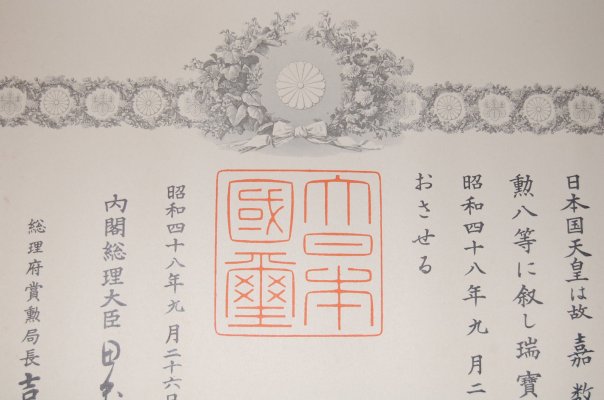 日本国天皇は故 嘉数
勲八等に叙し瑞寶
昭和四十八年九月二
おさせる
大日本國璽
昭和四十八年九月二十六日
内閣総理大臣 田
総理府賞勲局長 吉